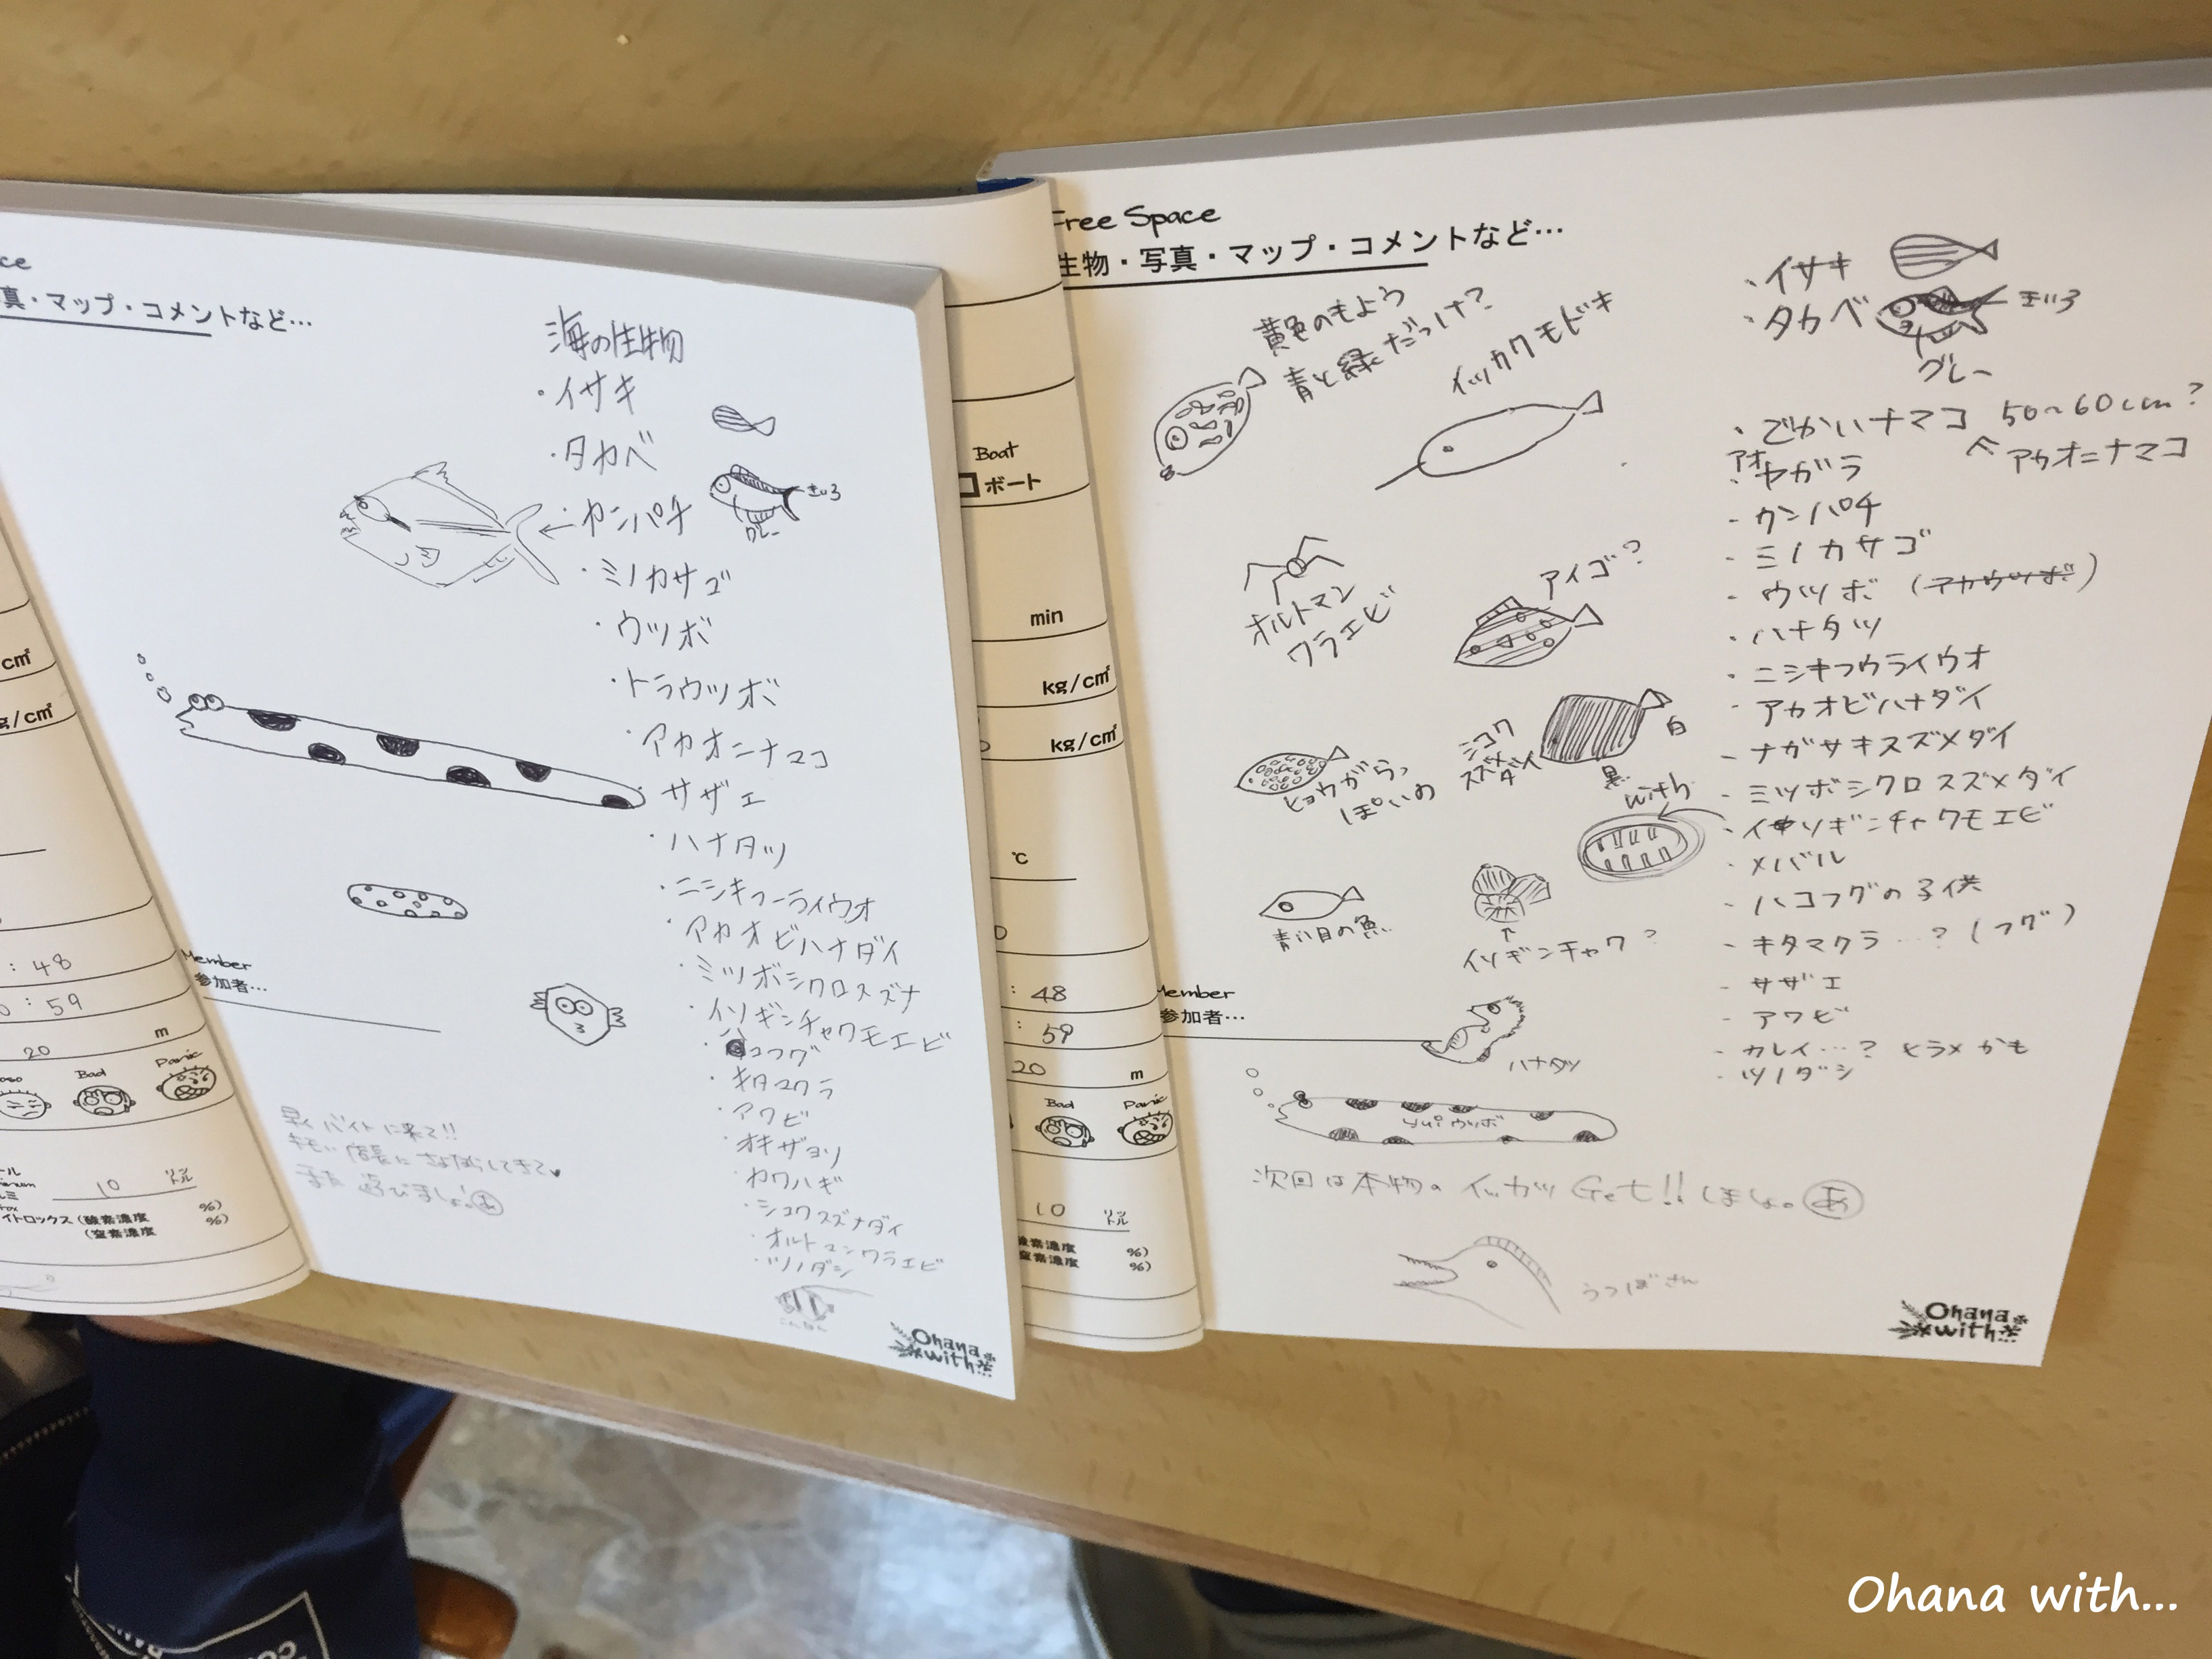 ce
真・マップ・コメントなど…
海の生物
・イサキ
・タカベ
きいろ
グレー
・カンパチ
・ミノカサゴ
・ウツボ
・トラウツボ
・アカオニナマコ
・サザエ
・ハナタツ
・ニシキフーライウオ
・アカオビハナダイ
・ミツボシクロスズナ
・イソギンチャクモエビ
・ハコフグ
・キタマクラ
・アワビ
・オキザヨリ
・カワハギ
・シコクスズナダイ
・オルトマンワラエビ
・ツノダシ
Member
参加者…
早くバイトに来て!!
また遊びましょ。あ
Ohana
with...
cm²
g/cm²
: 48
0 : 59
20 m
oso Bad Panic
10 リットル
イトロックス (酸素濃度 %)
(窒素濃度 %)
Boat
ボート
min
kg/cm²
kg/cm²
℃
: 48
: 59
20 m
Bad Panic
10 リットル
酸素濃度 %)
窒素濃度 %)
Free Space
生物・写真・マップ・コメントなど…
黄色のもよう
青と緑だっけ?
イッカクモドキ
オルトマン
ワラエビ
アイゴ?
ヒョウがらっ
ぽいの
シコク
スズメ
ダイ
白
黒
with
青い目の魚
イソギンチャク?
ハナタツ
yuiウツボ
Member
参加者…
・イサキ
・タカベ
きいろ
グレー
・でかいナマコ 50~60cm?
アカオニナマコ
アオ
・ヤガラ
- カンパチ
- ミノカサゴ
- ウツボ (アカウツボ)
・ハナタツ
・ニシキフウライウオ
- アカオビハナダイ
- ナガサキスズメダイ
- ミツボシクロスズメダイ
- イソギンチャクモエビ
- メバル
- ハコフグの子供
- キタマクラ…? (フグ)
- サザエ
- アワビ
- カレイ…? ヒラメかも
- ツノダシ
次回は本物のイッカツGet!!しましょ。あ
うつぼさん
Ohana
with...
Ohana with...